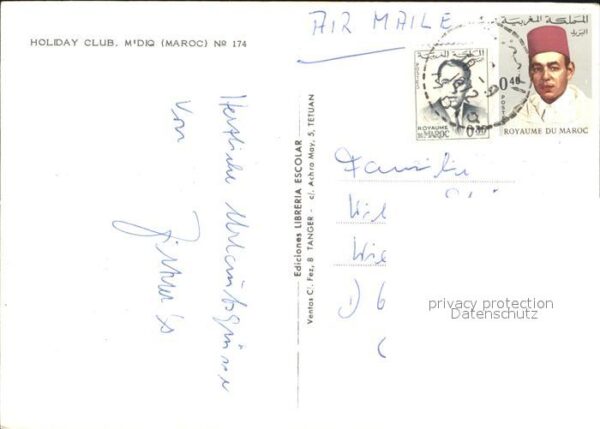 HOLIDAY CLUB. M'DIQ (MAROC) Nº 174
AIR MAILE
المملكة المغربية
البريد
0,40
ROYAUME DU MAROC
المملكة المغربية
ROYAUME
DU MAROC
Herzliche Urlaubsgrüsse
von
Ediciones LIBRERIA ESCOLAR
Ventas C/. Fez, 8 TANGER - c/. Achra May, 5, TETUAN
Familie
Wil
Wie
D 6
privacy protection
Datenschutz